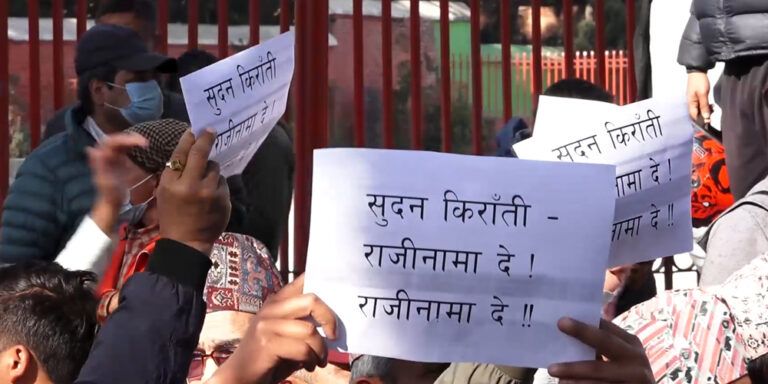 सुदन किराँती
राजीनामा दे !
सुदन किराँती
नामा दे !
नामा दे !!
सुदन किराँती -
राजीनामा दे !
राजीनामा दे !!